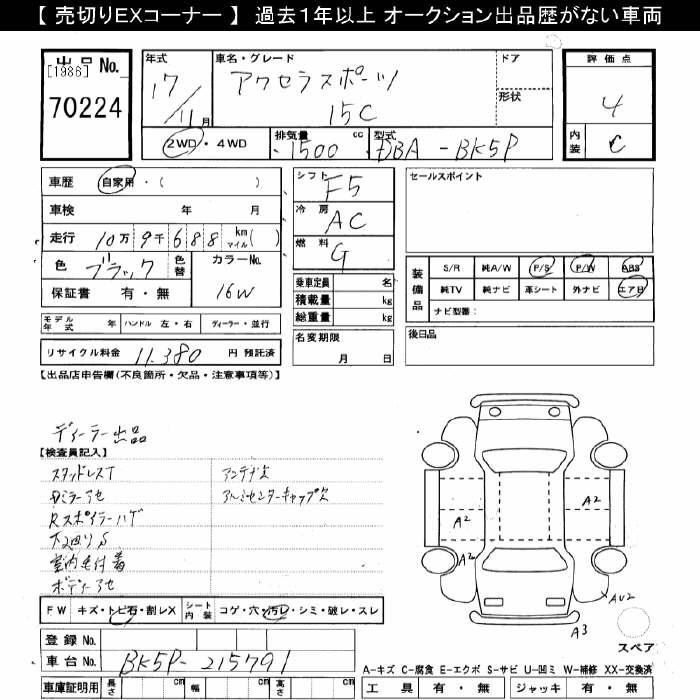 【 売切りEXコーナー 】 過去1年以上 オークション出品歴がない車両
出品 No.
[1986]
70224
年式
17/11月
車名・グレード
アクセラスポーツ
15C
ドア
形状
評価点
4
内装
C
2WD・4WD
排気量
1500 cc
型式
DBA-BK5P
車歴 自家用・( )
車検 年 月
走行 10万9千688 km マイル( )
色 ブラック 色替
カラーNo.
16W
保証書 有・無
シフト
F5
冷房
AC
燃料
G
乗車定員 名
積載量 kg
総重量 kg
名変期限
月 日
セールスポイント
装備品
S/R 純A/W P/S P/W ABS
純TV 純ナビ 革シート 外ナビ エアB
ナビ型番:
後日品
モデル年式 年 ハンドル 左・右 ディーラー・並行
リサイクル料金 11,380 円 預託済
【出品店申告欄(不良箇所・欠品・注意事項等)】
ディーラー出品
【検査員記入】
スタッドレスT
アンテナ欠
Dミラーアセ
アルミセンターキャップ欠
Rスポイラーハゲ
室内毛付着
ボディーアセ
A2
A2
A2
AU2
A3
スペア
FW キズ・トビ石・割レX シート内装 コゲ・穴・汚レ・シミ・破レ・スレ
登録 No.
車台 No. BK5P-215791
車庫証明用 長さ cm 幅 cm 高さ cm
A-キズ C-腐食 E-エクボ S-サビ U-凹ミ W-補修 XX-交換済
工具 有・無 ジャッキ 有・無